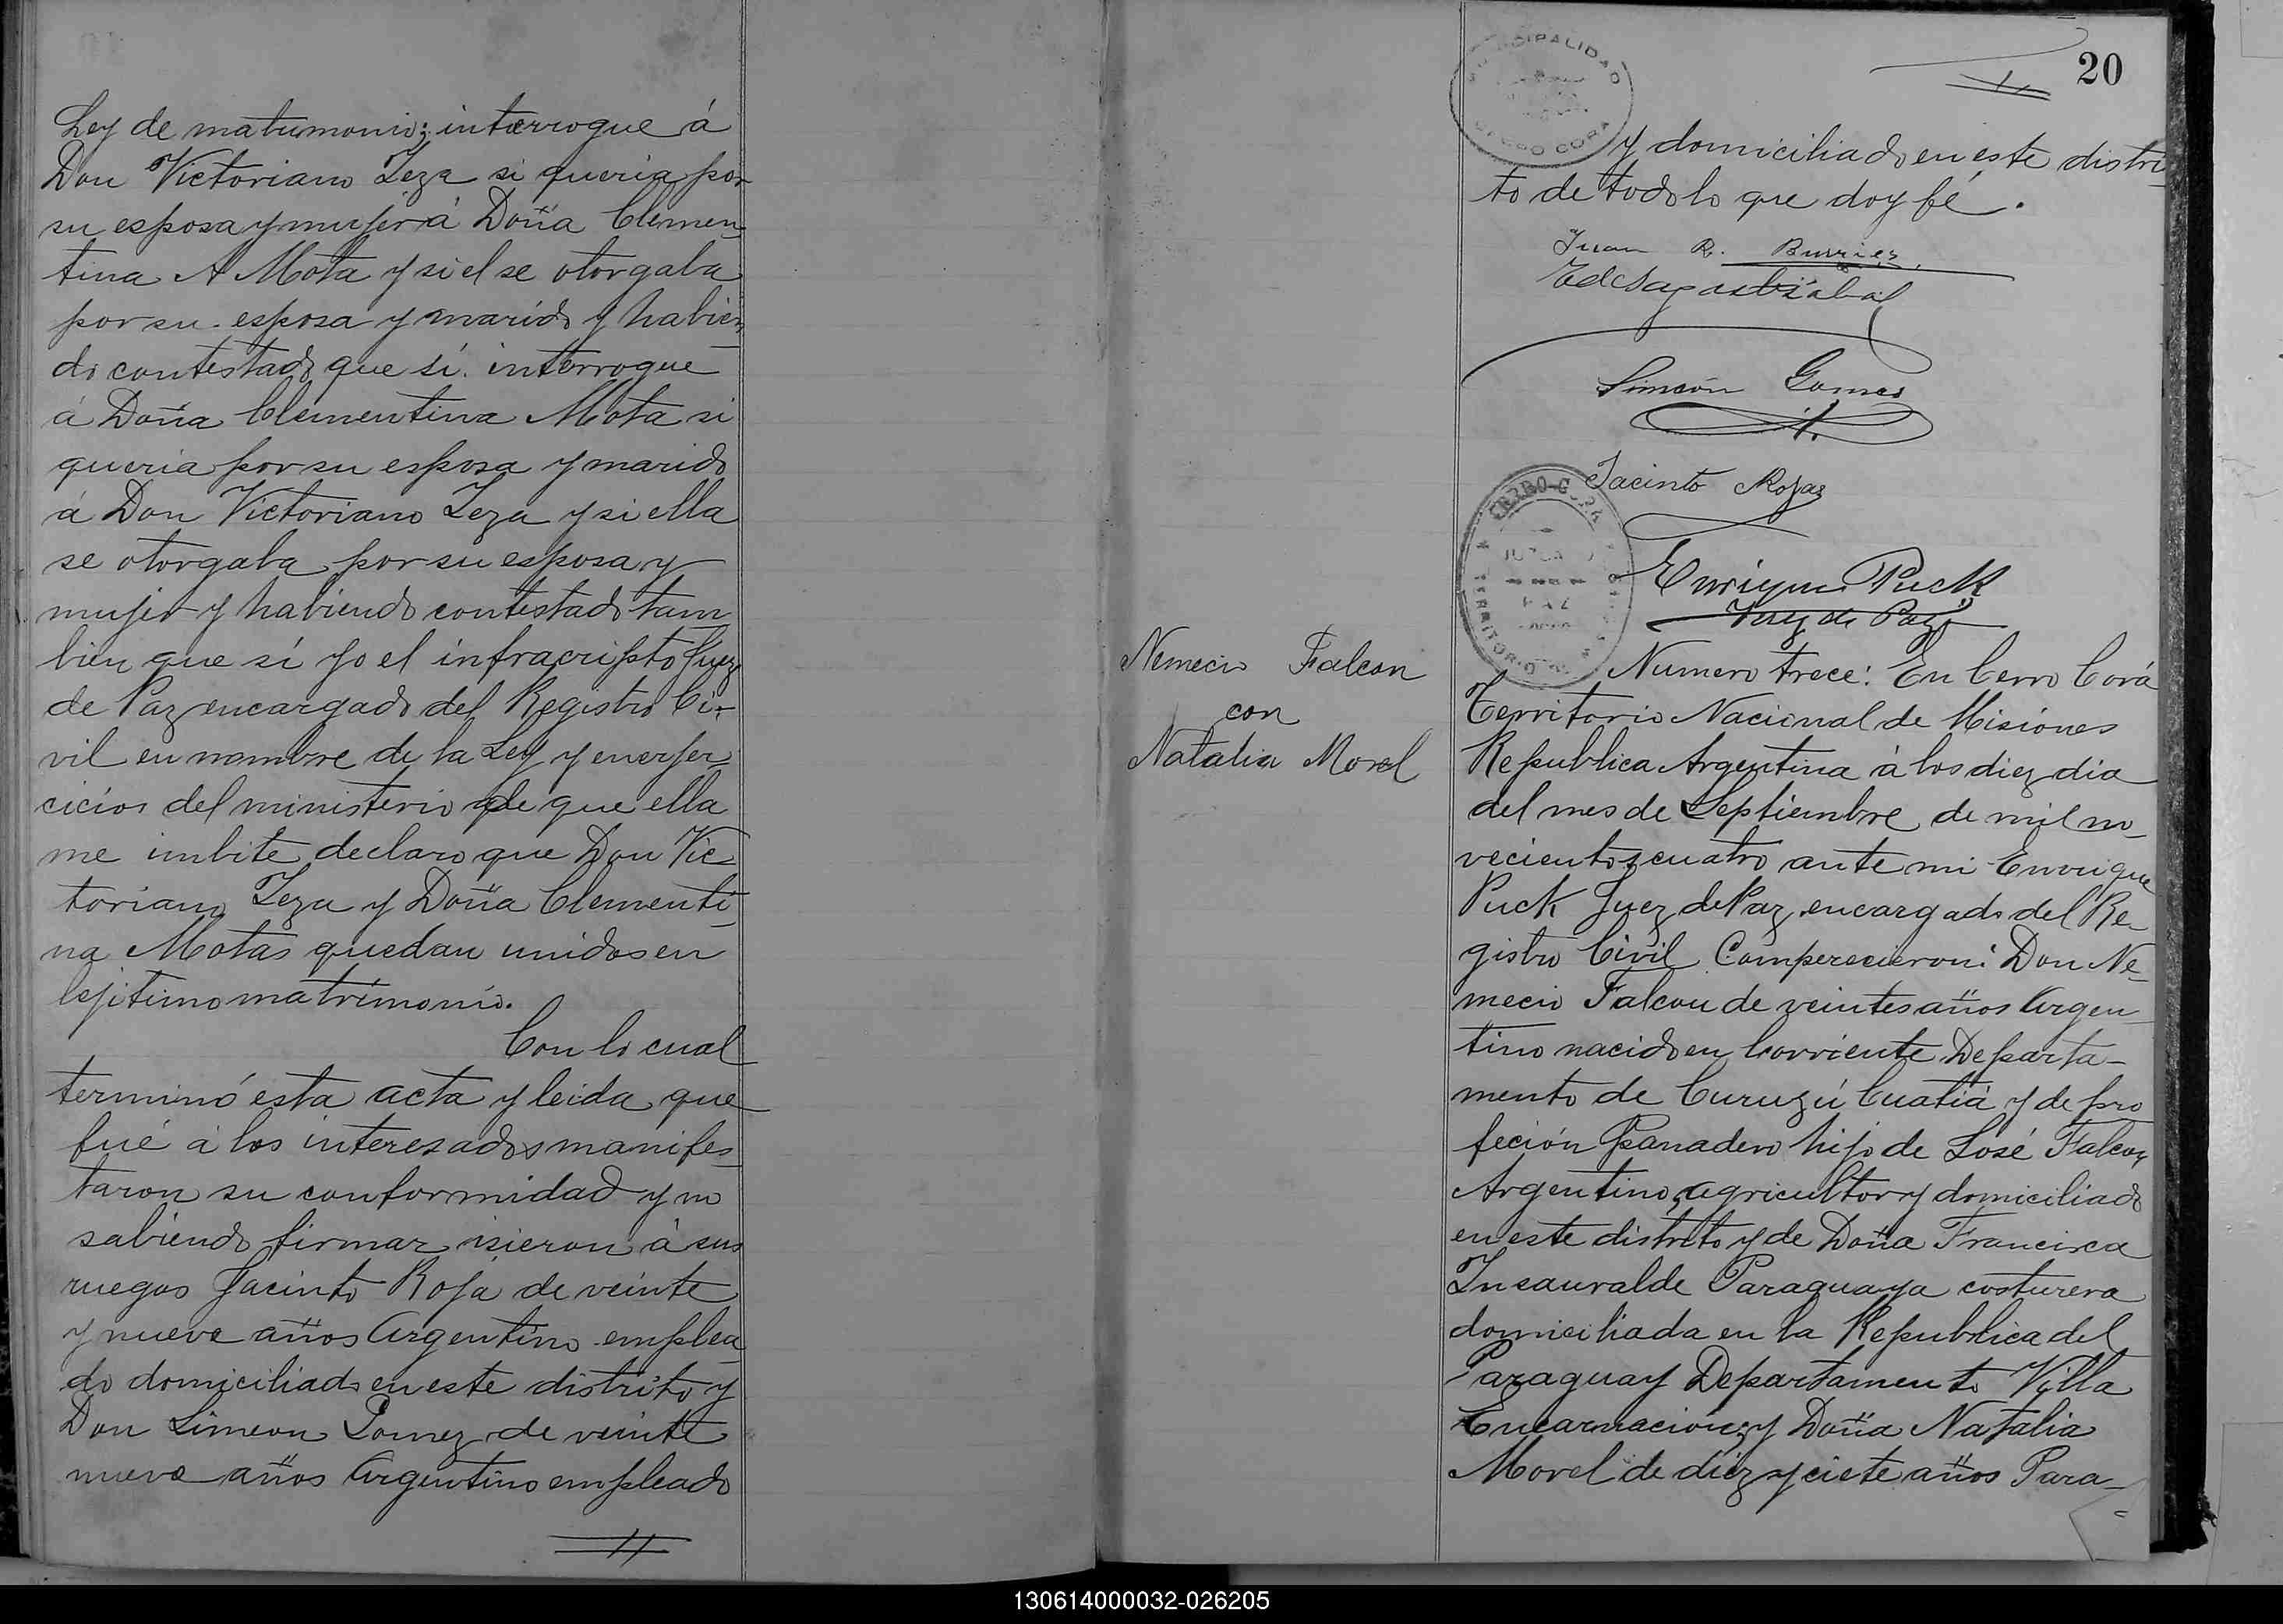 Ley de matrimonio; interrogue á
Don Victoriano Leza si queria por
su esposa y mujer á Doña Clemen-
tina A Mota y si el se otorgaba
por su esposa y marido y habien
do contestado que sí. interrogue
á Doña Clementina Mota si
queria por su esposa y marido
á Don Victoriano Leza y si ella
se otorgaba por su esposa y
mujer y habiendo contestado tam
bien que sí yo el infracripto Juez
de Paz encargado del Registro Ci-
vil en nombre de la Ley y en ejer-
cicios del ministerio de que ella
me imbite declaro que Don Vic
toriano Leza y Doña Clementi
na Motas quedan unidos en
lejitimo matrimonio.
Con lo cual
terminó esta acta y leida que
fué á los interesados manifes
taron su conformidad y no
sabiendo firmar isieron á sus
ruegos Jacinto Roja de veinte
y nueve años Argentino emplea
do domiciliado en este distrito y
Don Simeon Gomez de veinte
nueve años Argentino empleado
20
MUNICIPALIDAD
CERRO CORA
y domiciliado en este distri
to de todo lo que doy fé.
Juan R.
Simeón Gomes
Jacinto Rojas
CERRO CORA
JUZGADO
DE
PAZ
TERRITORIO
Enrique Puck
Juez de Paz
Nemecio Falcon
con
Natalia Morel
Numero trece: En Cerro Corá
Territorio Nacional de Misiónes
Republica Argentina á los diez dia
del mes de Septiembre de mil no
vecientos cuatro ante mi Enrrique
Puck Juez de Paz encargado del Re-
gistro Civil Comperecieron: Don Ne-
mecio Falcon de veintes años Argen
tino nacido en Corriente Departa-
mento de Curuzú Cuatiá y de pro
feción Panadero hijo de José Falcon
Argentino, agricultor y domiciliado
en este distrito y de Doña Francisca
Insauralde Paraguaya costurera
domiciliada en la Republica del
Paraguay Departamento Villa
Encarnacion; y Doña Natalia
Morel de diez y ciete años Para-
130614000032-026205